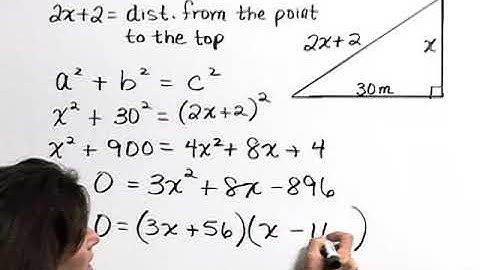 2x+2 = dist. from the point
to the top
2x+2
x
30m
a² + b² = c²
x² + 30² = (2x+2)²
x² + 900 = 4x² + 8x + 4
0 = 3x² + 8x - 896
0 = (3x + 56)(x - 1 )